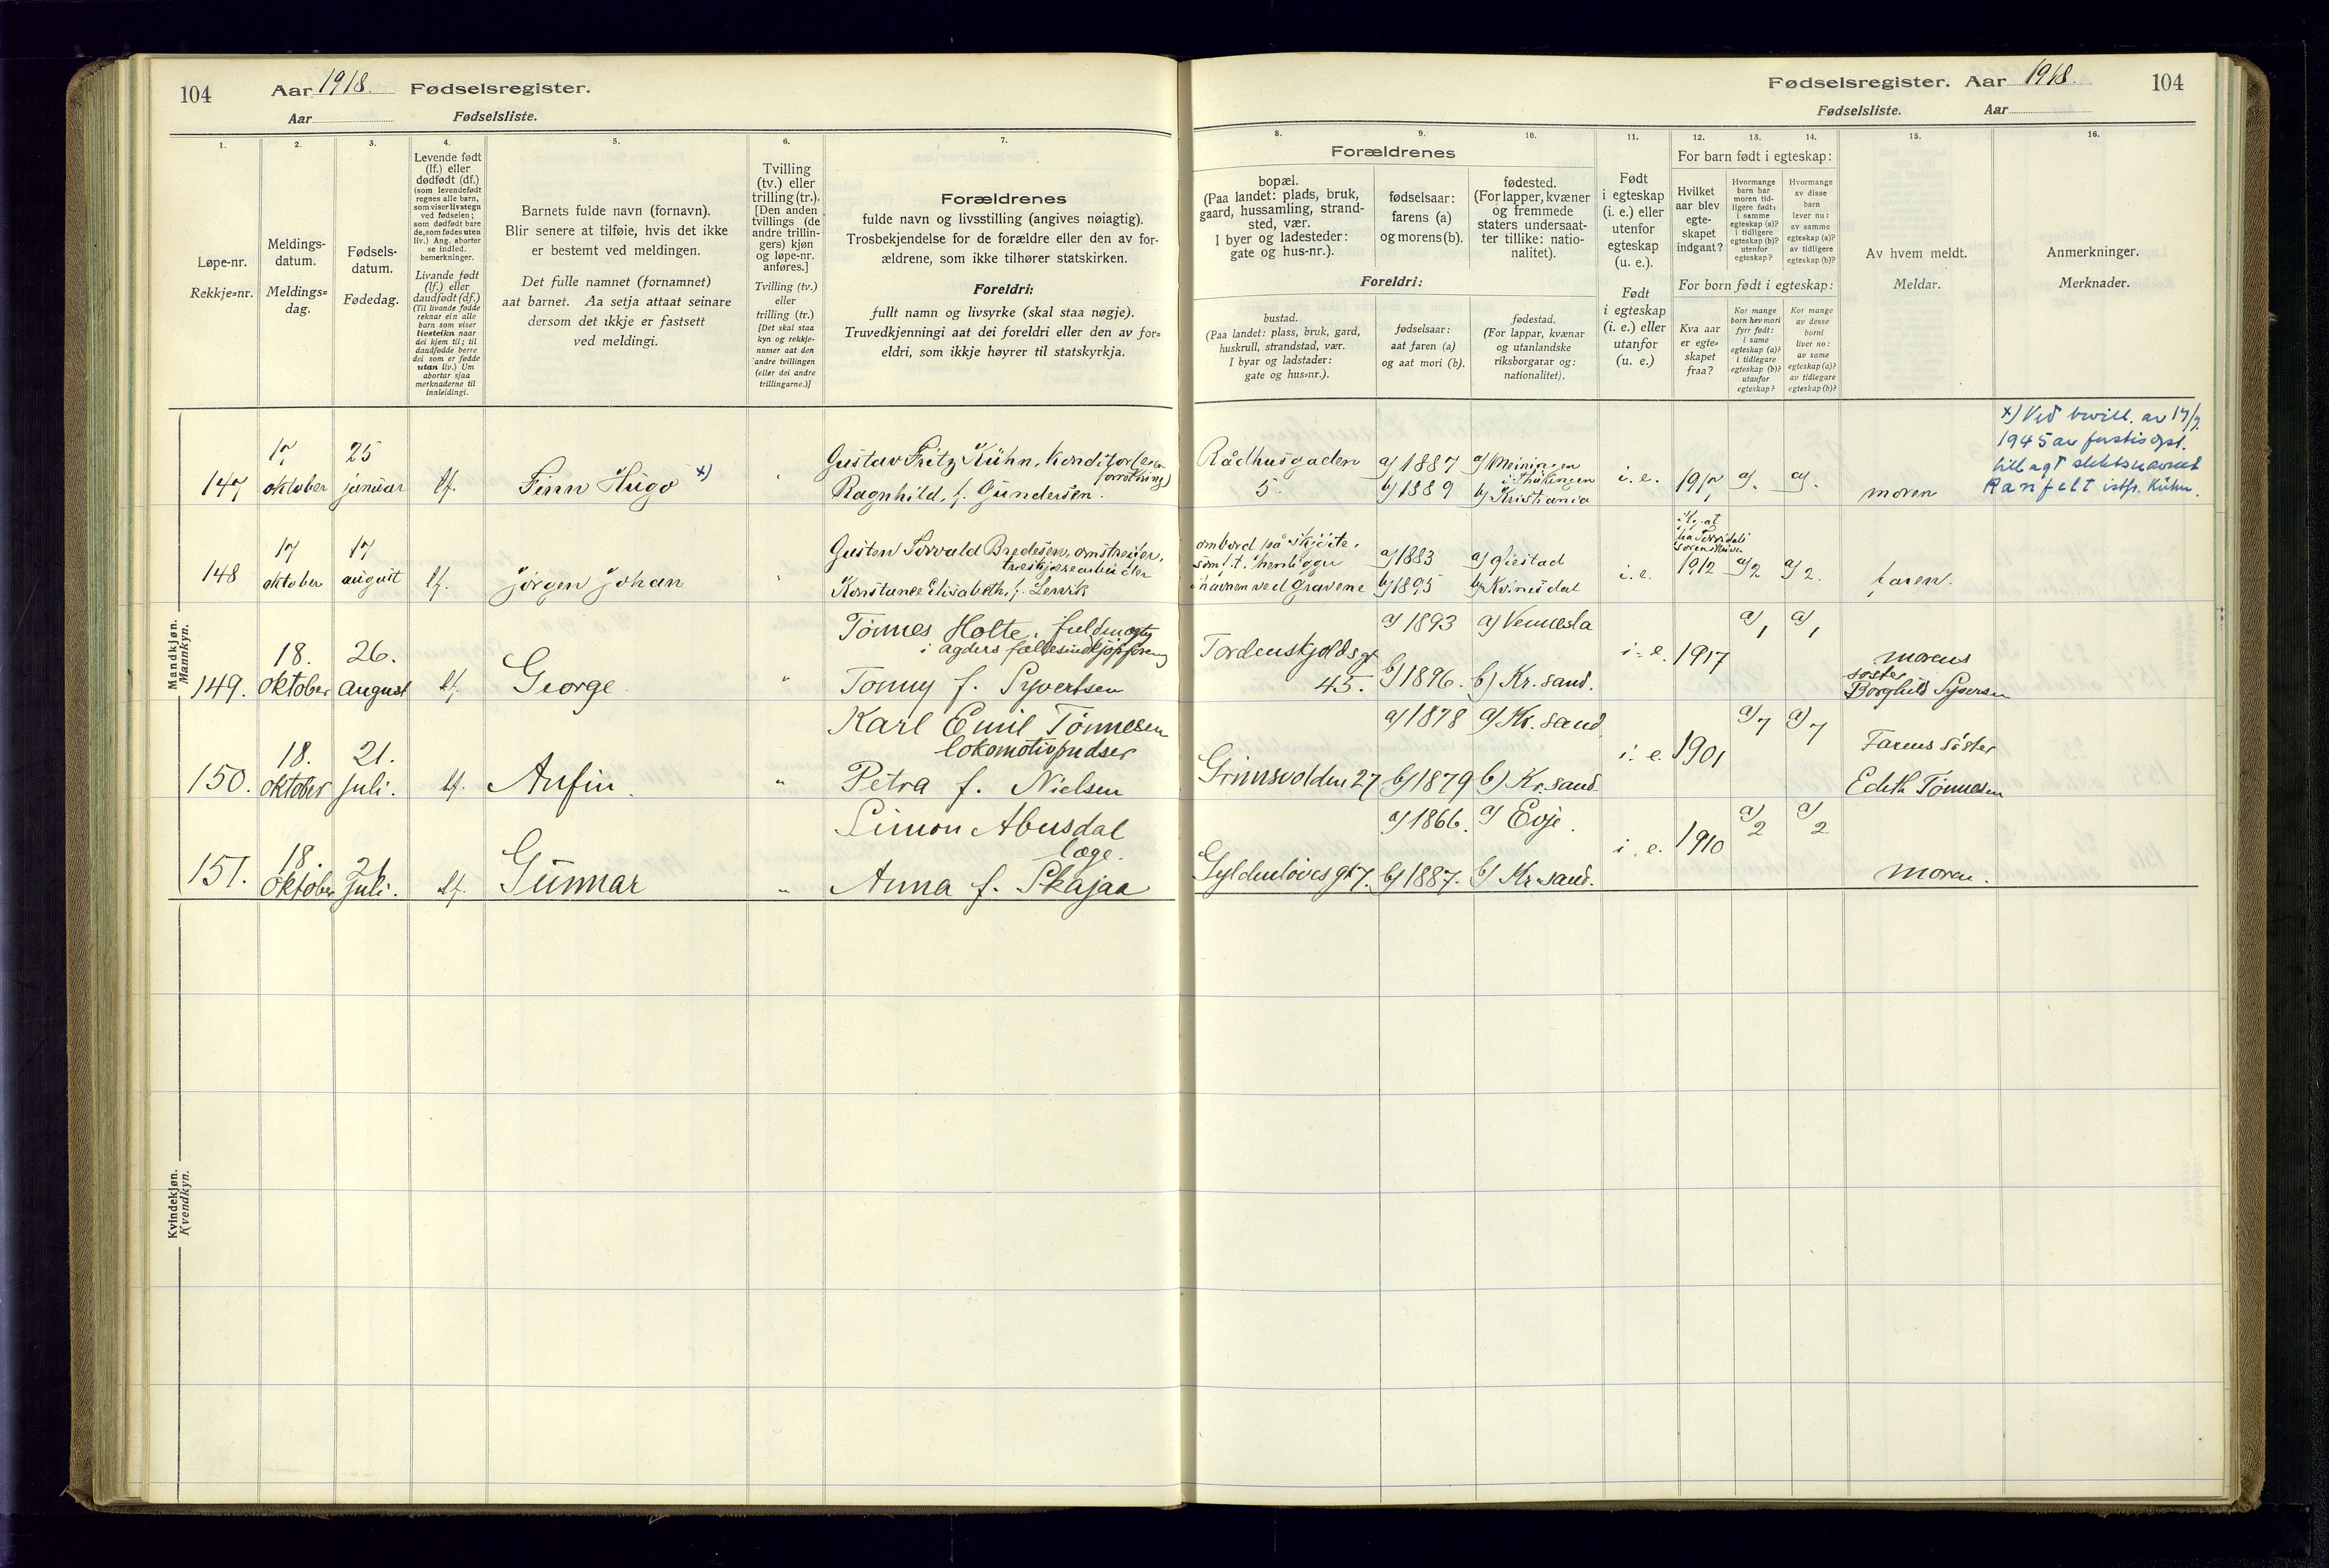 104
Aar 1918. Fødselsregister.
Aar Fødselsliste.
1.
2.
3.
4.
5.
6.
7.
Løpe-nr.
Rekkje=nr.
Meldings-
datum.
Meldings=
dag.
Fødsels-
datum.
Fødedag.
Levende født
(lf.) eller
dødfødt (df.)
(som levendefødt
regnes alle barn,
som viser livstegn
ved fødselen;
som dødfødt bare
de, som fødes uten
liv.) Ang. aborter
se indled.
bemerkninger.
Livande født
(lf.) eller
daudfødt (df.)
(Til livande fødde
reknar ein alle
barn som viser
livsteikn naar
dei kjem til; til
daudfødde berre
dei som er fødde
utan liv.) Um
abortar sjaa
merknaderne til
innleidingi.
Barnets fulde navn (fornavn).
Blir senere at tilføie, hvis det ikke
er bestemt ved meldingen.
Det fulle namnet (fornamnet)
aat barnet. Aa setja attaat seinare
dersom det ikkje er fastsett
ved meldingi.
Tvilling
(tv.) eller
trilling (tr.).
[Den anden
tvillings (de
andre trillin-
gers) kjøn
og løpe-nr.
anføres.]
Tvilling (tv.)
eller
trilling (tr.)
[Det skal staa
kyn og rekkje-
numer aat den
andre tvillingen
(eller dei andre
trillingarne.)]
Forældrenes
fulde navn og livsstilling (angives nøiagtig).
Trosbekjendelse for de forældre eller den av for-
ældrene, som ikke tilhører statskirken.
Foreldri:
fullt namn og livsyrke (skal staa nøgje).
Truvedkjenningi aat dei foreldri eller den av for=
eldri, som ikkje høyrer til statskyrkja.
Mandkjøn.
Mannkyn.
147
17
oktober
25
januar
lf.
Finn Hugo x)
"
Gustav Fritz Kühn, Konditor (egen
forretning)
Ragnhild, f. Gundersen.
148
17
oktober
17
august
lf.
Jørgen Johan
"
Gusten Torvald Bredesen, omstreifer,
Konstance Elisabeth, f. Lervik
149.
18.
oktober
26.
August
lf.
George
"
Tønnes Holte, fuldmægtig
i Agders fællesindkjøpsforening
Tonny f. Syvertsen
150.
18.
oktober
21.
juli.
lf.
Anfin.
"
Karl Emil Tønnesen
lokomotivpudser
Petra f. Nielsen
151.
18.
oktober
21
juli.
lf.
Gunnar
"
Simon Abusdal
læge.
Anna f. Skajaa
Kvindekjøn.
Kvendkyn.
Fødselsregister. Aar 1918.
104
Fødselsliste. Aar
8.
9.
10.
11.
12.
13.
14.
15.
16.
Forældrenes
bopæl.
(Paa landet: plads, bruk,
gaard, hussamling, strand-
sted, vær.
I byer og ladesteder:
gate og hus-nr.).
fødselsaar:
farens (a)
og morens (b).
fødested.
(For lapper, kvæner
og fremmede
staters undersaat-
ter tillike: natio-
nalitet).
Foreldri:
bustad.
(Paa landet: plass, bruk, gard,
huskrull, strandstad, vær.
I byar og ladstader:
gate og hus=nr.).
fødselsaar:
aat faren (a)
og aat mori (b).
fødestad.
(For lappar, kvænar
og utanlandske
riksborgarar og:
nationalitet).
Født
i egteskap
(i. e.) eller
utenfor
egteskap
(u. e.).
Født
i egteskap
(i. e.) eller
utanfor
(u. e.)
For barn født i egteskap:
Hvilket
aar blev
egte-
skapet
indgaat?
Hvormange
barn har
moren tid-
ligere født:
i samme
egteskap (a)?
i tidligere
egteskap (b)?
utenfor
egteskap?
Hvormange
av disse
barn
lever nu:
av samme
egteskap (a)?
av tidligere
egteskap (b)?
For born født i egteskap:
Kva aar
er egte=
skapet
fraa?
Kor mange
born hev mori
fyrr født:
i same
egteskap (a)?
i tidlegare
egteskap (b)?
utanfor
egteskap?
Kor mange
av desse
borni
liver no:
av same
egteskap (a)?
av tidlegare
egteskap (b)?
Av hvem meldt.
Meldar.
Anmerkninger.
Merknader.
Rådhusgaden
5.
a) 1887
b) 1889
a) Meiningen
i Thüringen
b) Kristiania
i. e.
a).
a).
moren
x) Ved bevill. av 17/7
1945 av justisdept.
tillagt slektsnavnet
Ranfelt istf. Kühn.
ombord på skjøite,
som f. t. henligger
i havnen ved Gravene
a) 1883
b) 1895
a) Giestad
b) Kvinesdal
i. e.
1912
a) 2
a) 2.
faren.
Tordenskjoldsgt
45.
a) 1893
b) 1896.
a) Vennesla
b) Kr.sand.
i. e.
1917
a) 1
a) 1
morens
søster
Borghild Syversen
Grimsvolden 27
a) 1878
b) 1879
a) Kr.sand
b) Kr.sand.
i. e.
1901
a) 7
a) 7
Farens søster
Edith Tønnesen
Gyldenløves gt 7.
a) 1866.
b) 1887.
a) Evje.
b) Kr.sand.
i. e.
1910
a) 2
a) 2
moren.